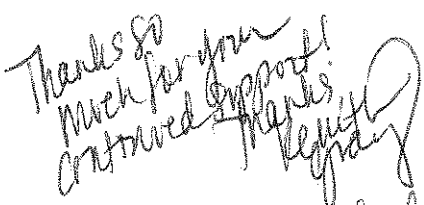 Thanks so
much for your
continued support!
Thanks.